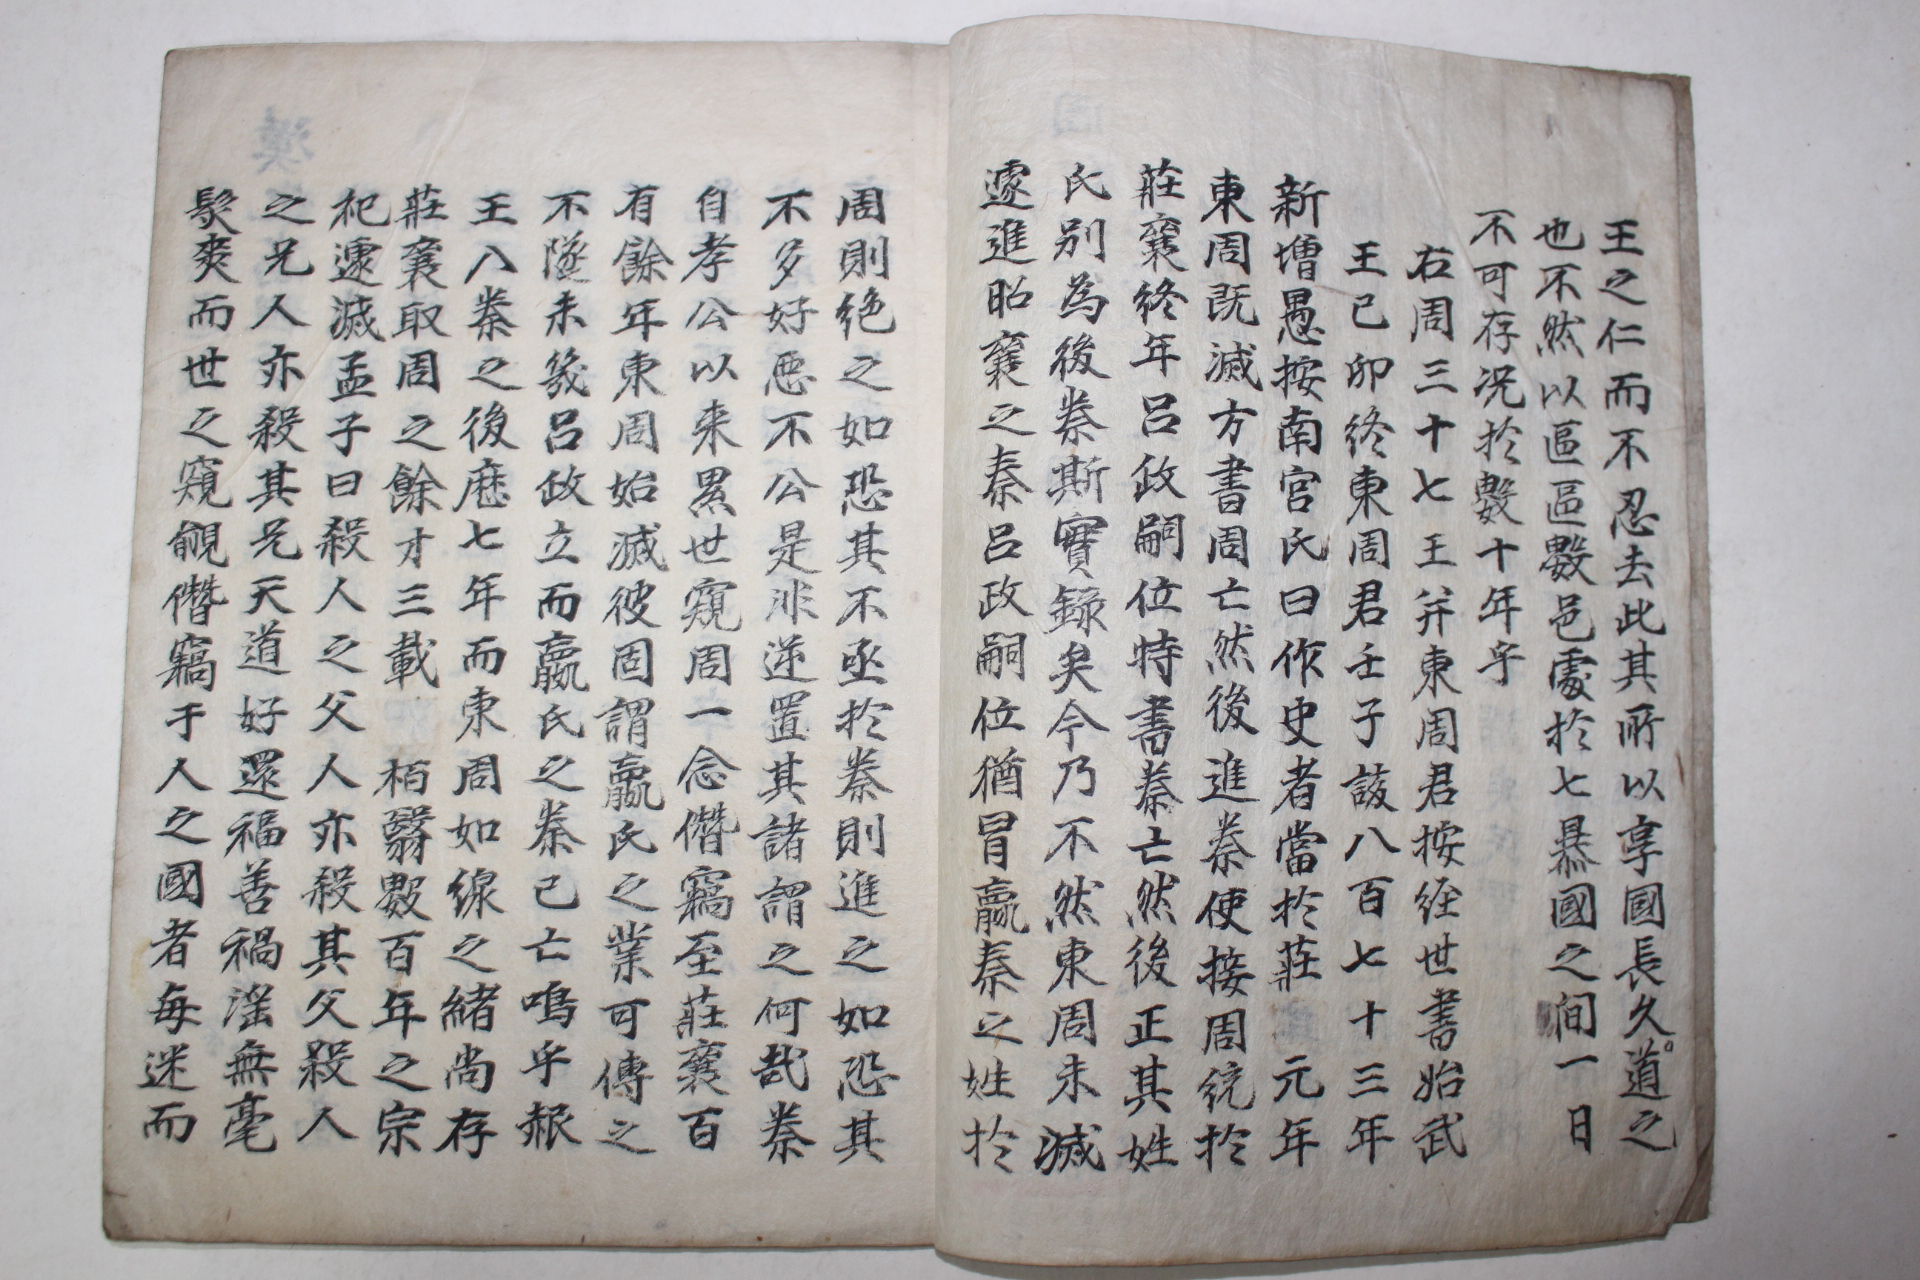 王之仁而不忍去此其所以享國長久道之
也不然以區區數邑處於七暴國之间一日
不可存况於數十年乎
右周三十七王并東周君按经世書始武
王己卯終東周君壬子該八百七十三年
新增愚按南宫氏曰作史者當於莊元年
東周既滅方書周亡然後進秦使接周統於
莊襄終年呂政嗣位特書秦亡然後正其姓
氏别為後秦斯實録矣今乃不然東周未滅
遽進昭襄之秦呂政嗣位猶冒嬴秦之姓於
周則绝之如恐其不亟於秦則進之如恐其
不多好惡不公是非逆置其諸謂之何哉秦
自孝公以来累世窺周一念僭竊至莊襄百
有餘年東周始滅彼固謂嬴氏之業可傳之
不墜未幾呂政立而嬴氏之秦已亡嗚乎赧
王入秦之後歷七年而東周如線之緒尚存
莊襄取周之餘才三載栢翳數百年之宗
祀遽滅孟子曰殺人之父人亦殺其父殺人
之兄人亦殺其兄天道好還福善禍滛無毫
髮爽而世之窺覦僭竊于人之國者每迷而